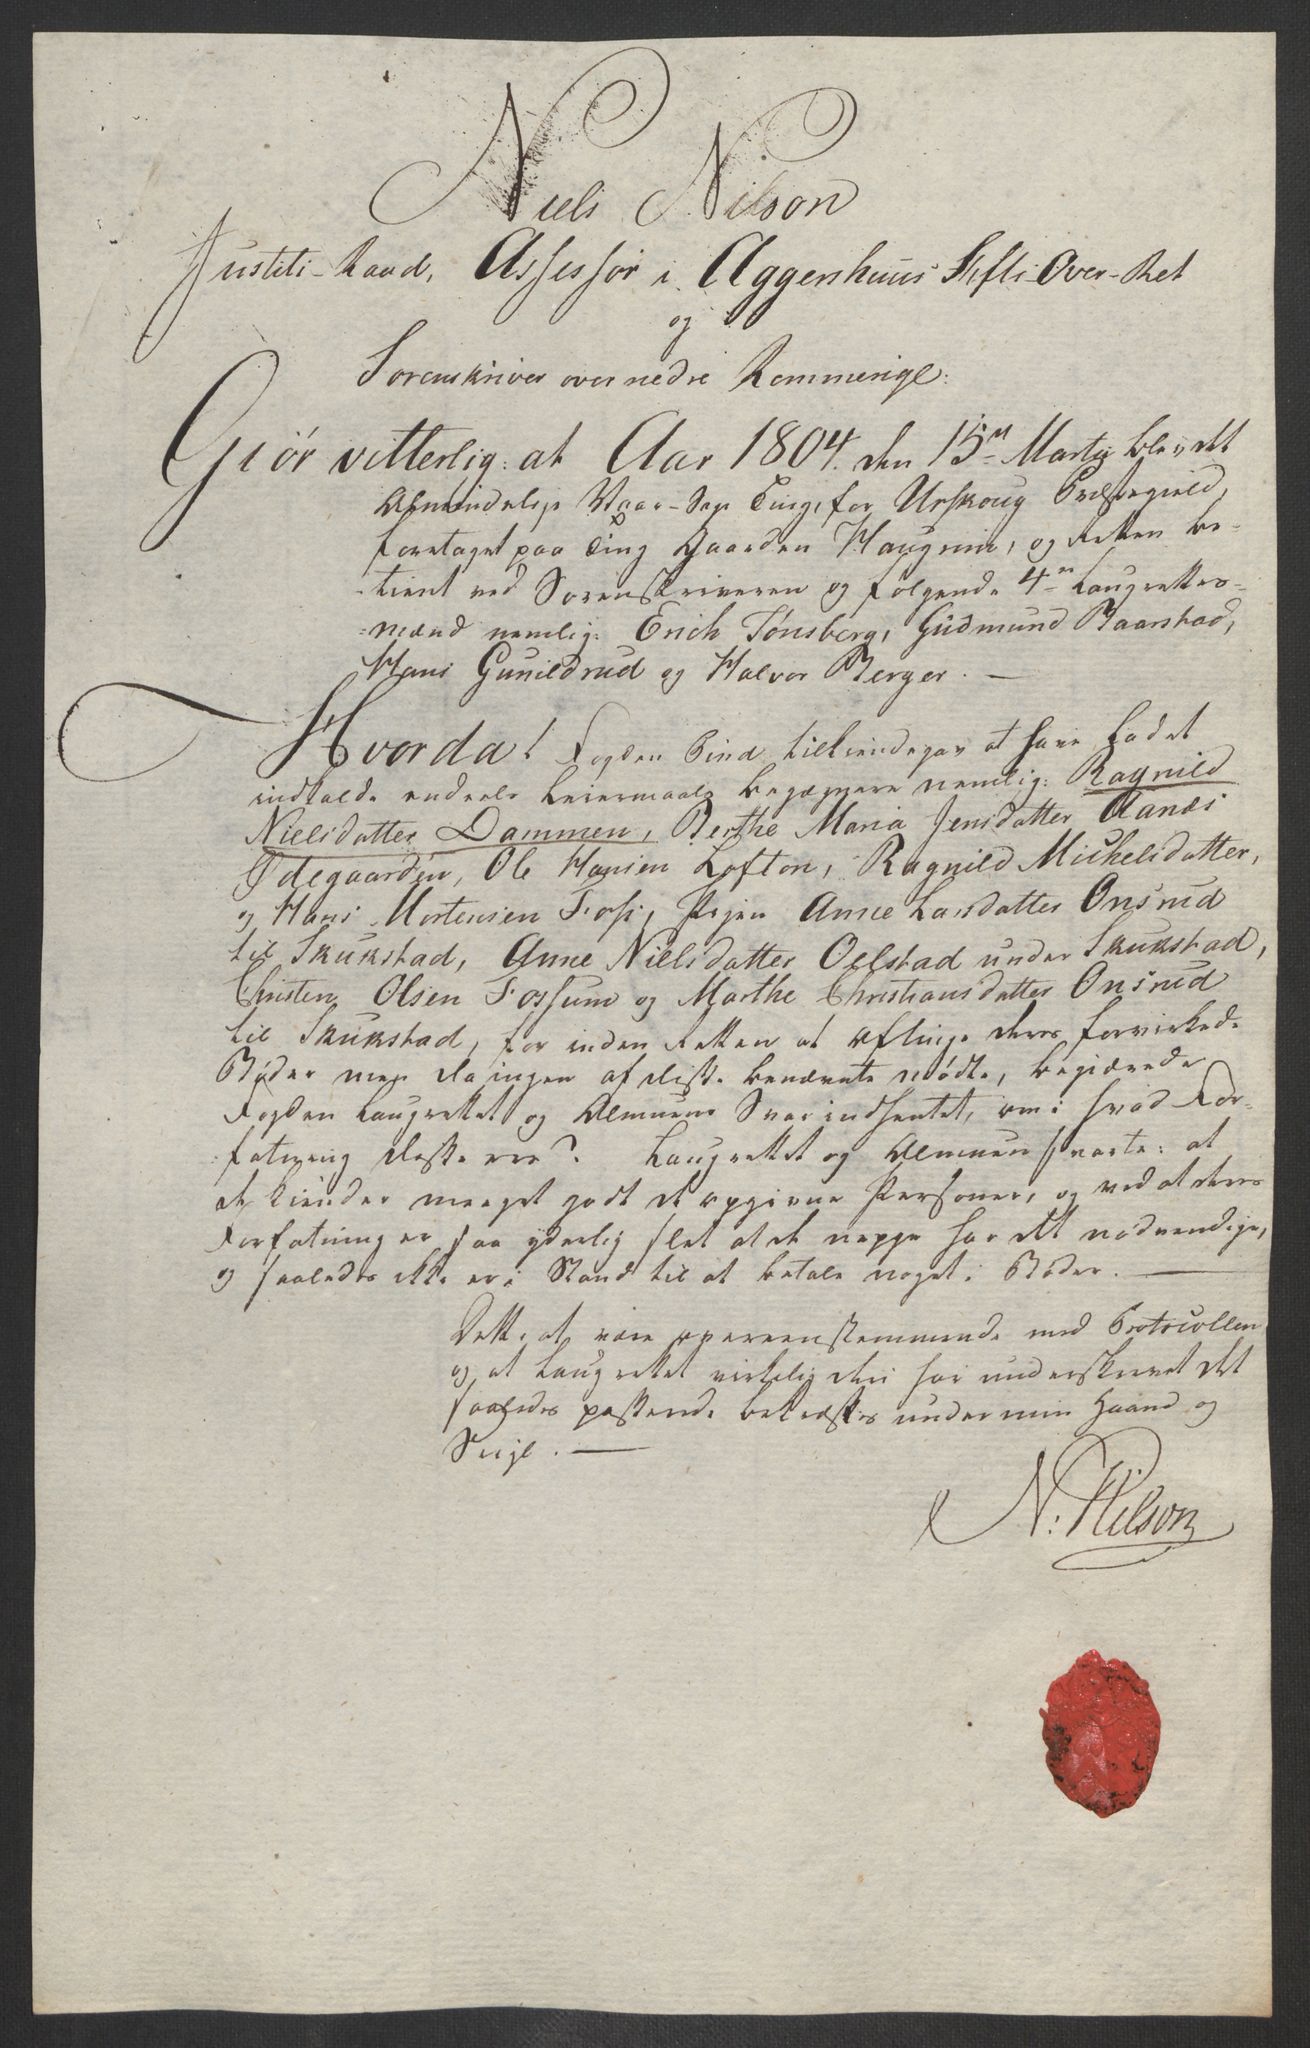 Niels Nilson
Justits-Raad, Assessor i Aggershuus Stifts-Over-Ret
og
Sorenskriver over nedre Rommerige:
Giör vitterlig: at Aar 1804. den 15de Martij blev det
Almindelige Vaar-Sage Ting, for Urskoug Præstegield,
foretaget paa Ting Gaarden Haugnin, og Retten be-
-tient ved Sorenskriveren og følgende 4re Laugrettes-
-mænd nemlig: Erich Tönsberg, Gudmund Baarstad,
Hans Gunildrud og Halvor Berger. —
Hvorda! Fogden Bind tilkiendegav at have ladet
indkalde endeels Leiermaals Begængere nemlig: Ragnild
Nielsdatter Dammen, Berthe Maria Jensdatter Aanæs
Ödegaarden, Ole Hansen Lofton, Ragnild Michelsdatter,
og Hans Mortensen Foss, Pigen Anne Larsdatter Onsrud
til Skukstad, Anne Nielsdatter Oelstad under Skukstad,
Christen Olsen Fossum og Marthe Christiansdatter Onsrud
til Skukstad, for inden Retten at aftinge deres forvirkede
Böder men da ingen af disse benævnte mödte, begiærede
Fogden Laugrettet og Almuens Svar indhentet, om i hvad For-
-fatning disse ere? Laugrettet og Almuen svarte: at
de kiender meeget godt de opgivne Personer, og ved at deres
Forfatning er saa yderlig slet at de neppe har det nödvendige,
og saaledes ikke er i Stand til at betale noget i Böder. —
Dette at være overeenstemmende med Protocollen
og at Laugrettet virkelig deri har underskrevet det
saaledes passerede bekræftes under min Haand og
Seigl. —
N: Nilson